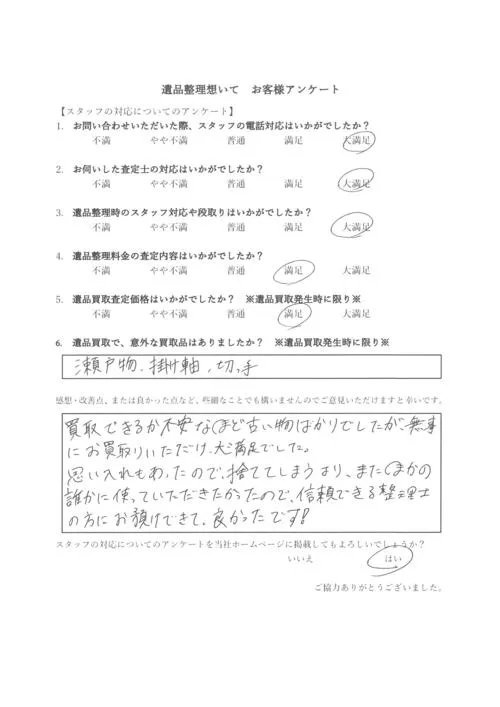 遺品整理想いて　お客様アンケート
【スタッフの対応についてのアンケート】
1.　お問い合わせいただいた際、スタッフの電話対応はいかがでしたか？
不満　やや不満　普通　満足　大満足
2.　お伺いした査定士の対応はいかがでしたか？
不満　やや不満　普通　満足　大満足
3.　遺品整理時のスタッフ対応や段取りはいかがでしたか？
不満　やや不満　普通　満足　大満足
4.　遺品整理料金の査定内容はいかがでしたか？
不満　やや不満　普通　満足　大満足
5.　遺品買取査定価格はいかがでしたか？　※遺品買取発生時に限り※
不満　やや不満　普通　満足　大満足
6.　遺品買取で、意外な買取品はありましたか？　※遺品買取発生時に限り※
瀬戸物、掛け軸、切手
感想・改善点、または良かった点など、些細なことでも構いませんのでご意見いただけますと幸いです。
買取できるか不安なほど古い物ばかりでしたが、無事
にお買取りいただけ、大満足でした。
思い入れもあったので、捨ててしまうより、またほかの
誰かに使っていただきたかったので、信頼できる整理士
の方にお預けできて、良かったです!
スタッフの対応についてのアンケートを当社ホームページに掲載してもよろしいでしょうか？
いいえ　はい
ご協力ありがとうございました。